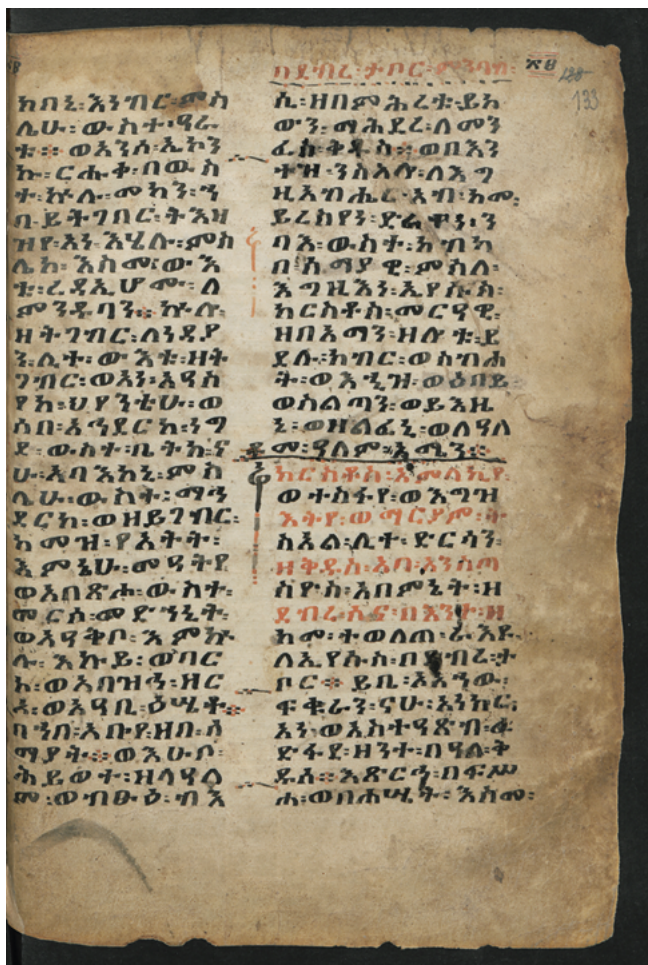 በደብረ፡ታቦር፡ምንባብ፡
133
ክበኒ፡እንብር፡ምስ
ሌሁ፡ውስተ፡ዓራ
ቱ፡፡ወአንሰ፡ኢኮን
ኩ፡ርሑቀ፡በውስ
ተ፡ኵሉ፡መካን፡ን
ባ፡ይትገበር፡ትእዛ
ዝየ፡አን፡እሄሉ፡ምስ
ሌከ፡እስመ፡ውእ
ቱ፡ረዳኢሆሙ፡ለ
ምንዱባን፡፡ኵሉ፡
ዘትገብር፡ለነዳያ
ን፡ሊተ፡ውእቱ፡ዘት
ገብር፡ወአን፡አዓስ
የከ፡ህየንቴሁ፡ወ
ሶበ፡አኅደርከ፡ነግ
ደ፡ውስተ፡ቤትከ፡ና
ሁ፡አባእከኒ፡ምስ
ሌሁ፡ውስተ፡ማኅ
ደርከ፡ወዘይገብር፡
ከመዝ፡የአትት፡
እምኔሁ፡መዓትየ
ወአበጽሖ፡ውስተ፡
መርሶ፡መድኀኒት፡
ወአዓቅቦ፡እምኵ
ሉ፡እኩይ፡ወባር
ኅ፡ወአበዝኅ፡ዘር
ዓ፡ወአዓቢ፡ዕሤቶ፡፡
ባንበ፡አቡየ፡ዘበ፡ሰ
ማያት፡፡ወእሁቦ፡
ሕይወተ፡ዘለዓለ
ም፡ወብፁዕ፡ብእ
ሲ፡ዘበምሕረቱ፡ይከ
ውን፡ማሕደረ፡ለመን
ፈስ፡ቅዱስ፡፡ወበእን
ተዝ፡ንስአሎ፡ለእግ
ዚአብሔር፡አብ፡ከመ፡
ይረስየን፡ድልዋን፡ን
ባእ፡ውስተ፡ከብካ
ብ፡ሰማያዊ፡ምስለ፡
እግዚእነ፡ኢየሱስ፡
ክርስቶስ፡መርዓዊ፡
ዘበአማን፡ዘሎቱ፡ይ
ደሉ፡ክብር፡ወስብሐ
ት፡ወእኂዝ፡ወዕበይ
ወስልጣን፡ወይእዜ
ኒ፡ወዘልፈኒ፡ወለዓለ
መ፡ዓለም፡አሜን፡፡
ክርስቶስ፡አምላኪየ፡
ወተስፋየ፡ወእግዝ
እትየ፡ወማርያም፡ት
ስአል፡ሊተ፡ድርሳን፡
ዘቅዱስ፡አባ፡አንስጣ
ስዮስ፡አበምኔት፡ዘ
ደብረ፡ሲና፡በእንተ፡ዘ
ከመ፡ተወለጠ፡ራእዩ
ለኢየሱስ፡በደብረ፡ታ
ቦር፡፡ይቤ፡አአኀው፡
ፍቁራን፡ናሁ፡አንክር፡
አን፡ወአስተዓጽብ፡ፈ
ድፋደ፡ዘንተ፡በዓለ፡ቅ
ዱሰ፡፡እጽርኅ፡በፍሥ
ሐ፡ወበሐሤት፡እስመ፡